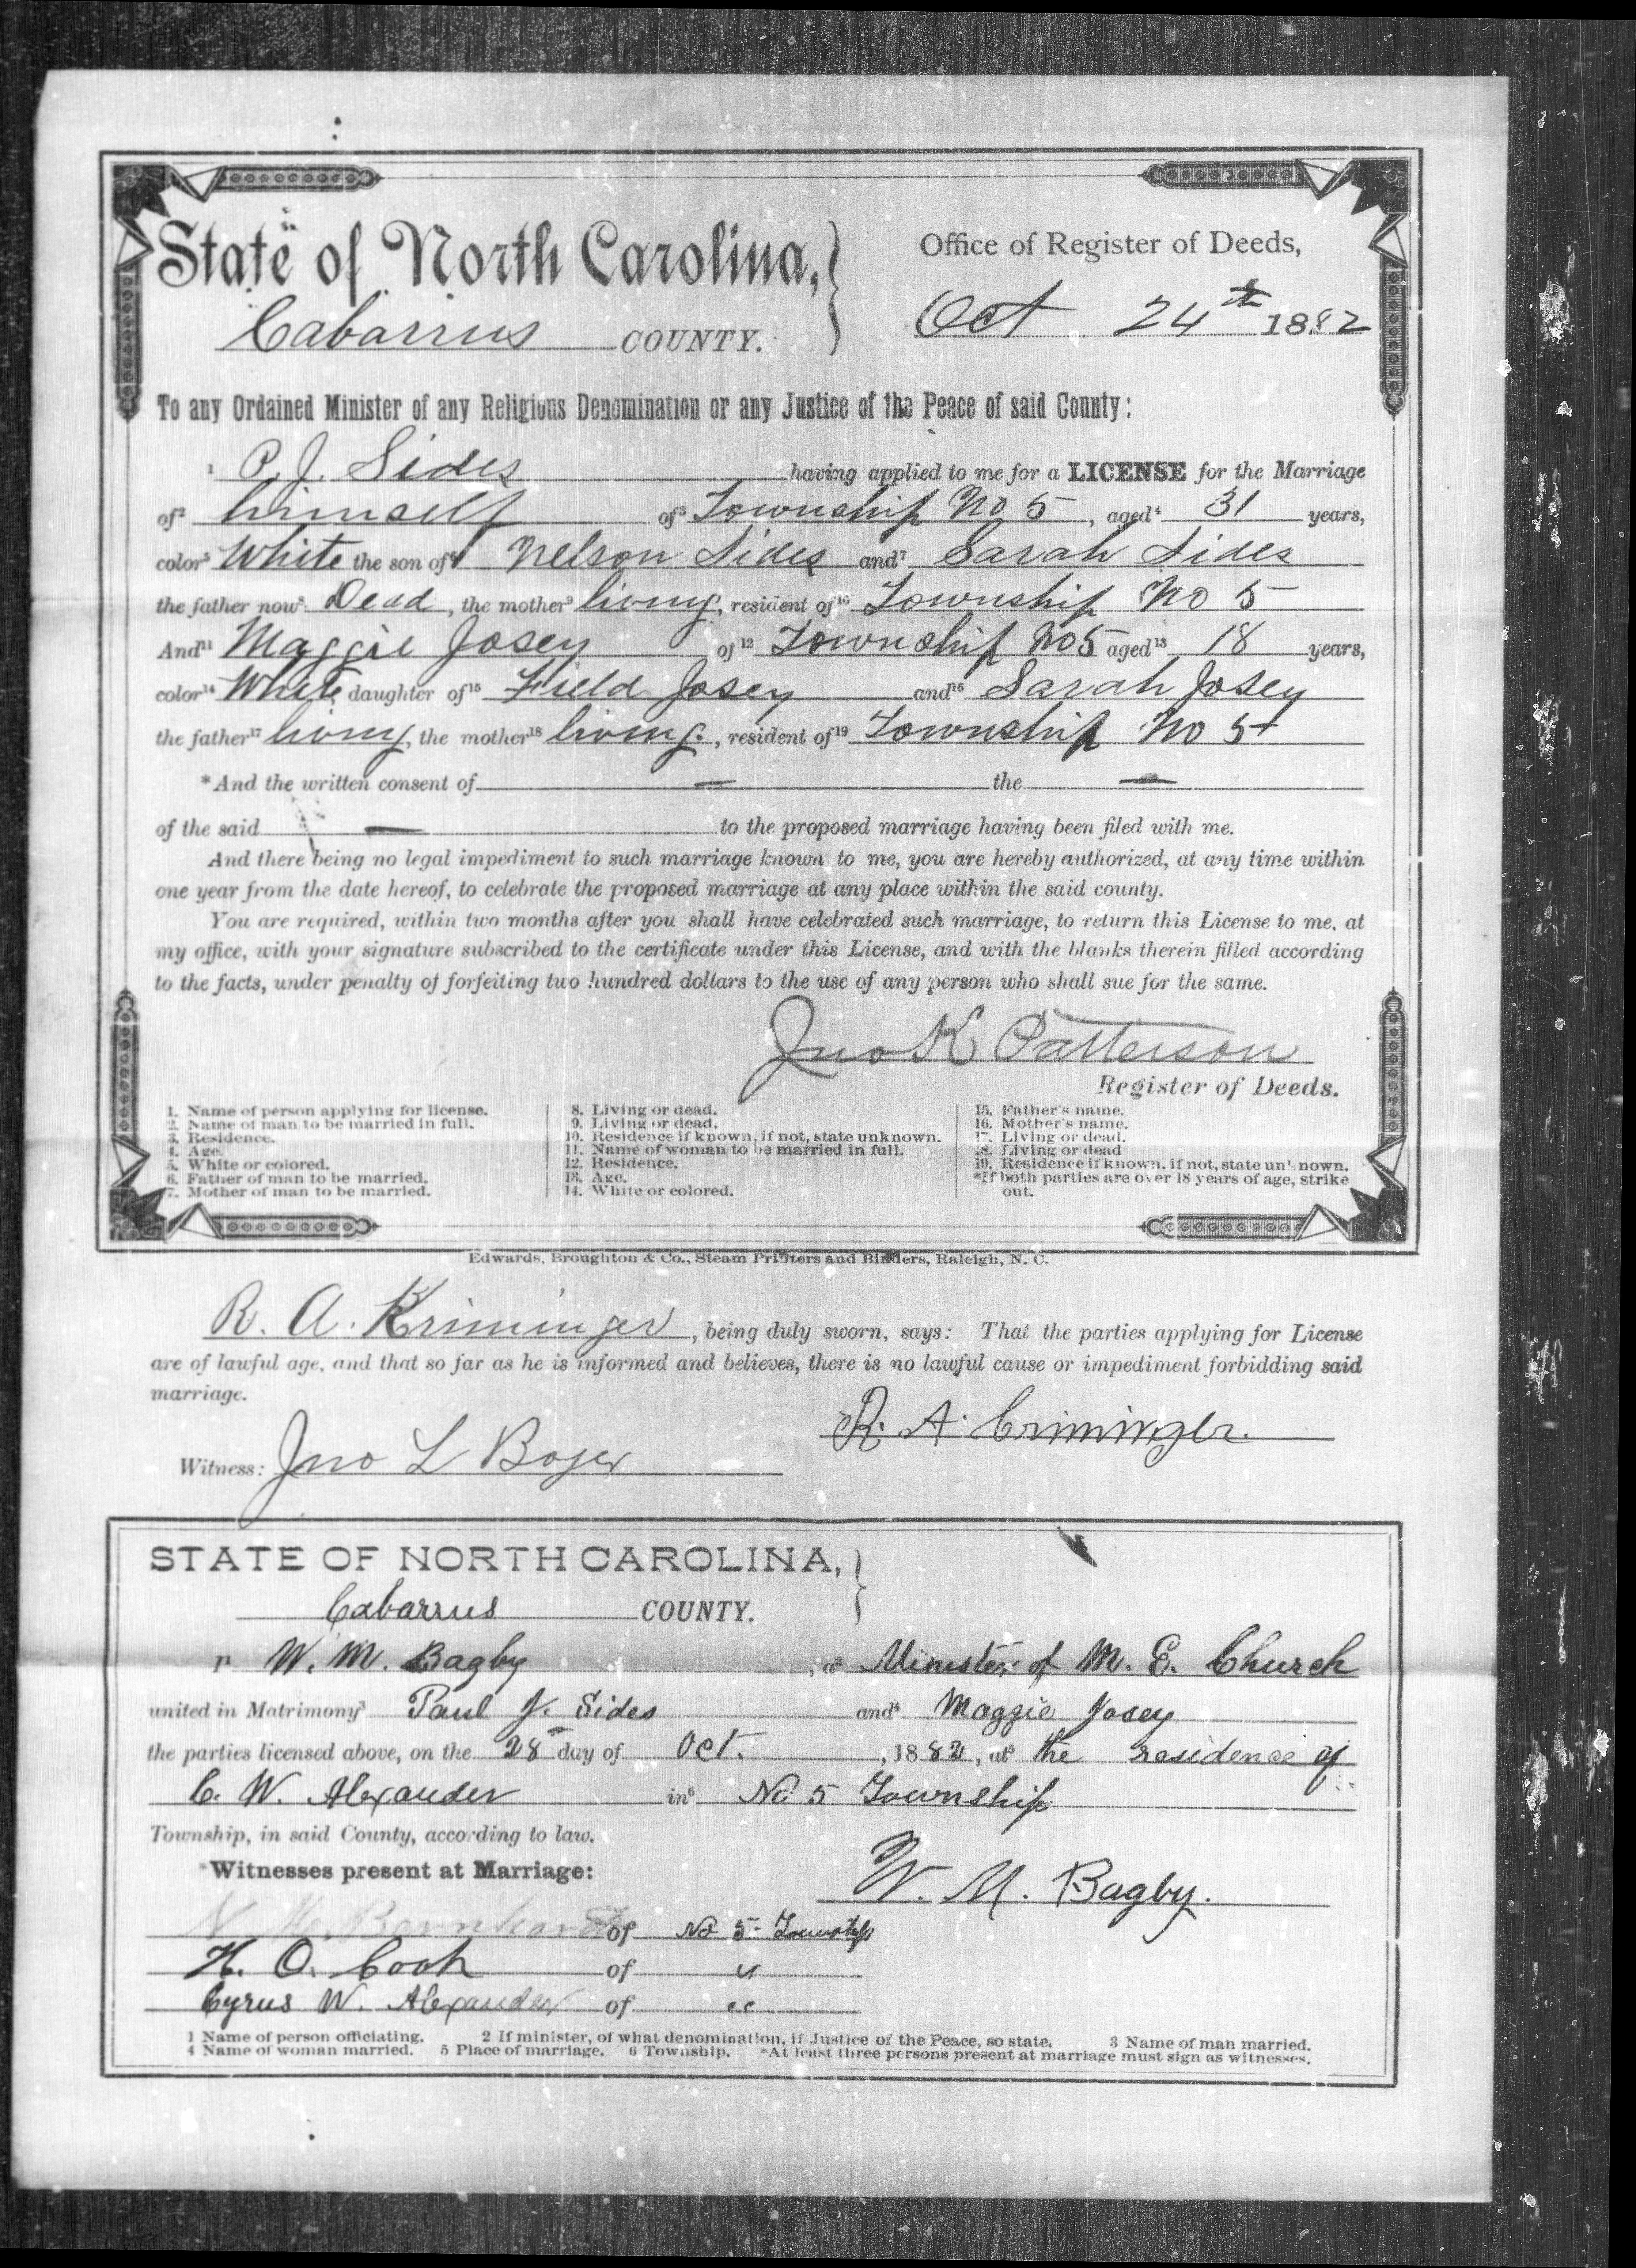 State of North Carolina, Office of Register of Deeds,
Cabarrus COUNTY. Oct 24th 1882
To any Ordained Minister of any Religious Denomination or any Justice of the Peace of said County:
1 P. J. Sides having applied to me for a LICENSE for the Marriage
of2 himself of3 Township No 5, aged4 31 years,
color5 White the son of6 Nelson Sides and7 Sarah Sides
the father now8 Dead, the mother9 living, resident of10 Township No 5
And11 Maggie Josey of12 Township No 5 aged13 18 years,
color14 White daughter of15 Field Josey and16 Sarah Josey
the father17 living, the mother18 living, resident of19 Township No 5
*And the written consent of — the —
of the said — to the proposed marriage having been filed with me.
And there being no legal impediment to such marriage known to me, you are hereby authorized, at any time within
one year from the date hereof, to celebrate the proposed marriage at any place within the said county.
You are required, within two months after you shall have celebrated such marriage, to return this License to me, at
my office, with your signature subscribed to the certificate under this License, and with the blanks therein filled according
to the facts, under penalty of forfeiting two hundred dollars to the use of any person who shall sue for the same.
Jno K Patterson
Register of Deeds.
1. Name of person applying for license.
2. Name of man to be married in full.
3. Residence.
4. Age.
5. White or colored.
6. Father of man to be married.
7. Mother of man to be married.
8. Living or dead.
9. Living or dead.
10. Residence if known, if not, state unknown.
11. Name of woman to be married in full.
12. Residence.
13. Age.
14. White or colored.
15. Father's name.
16. Mother's name.
17. Living or dead.
18. Living or dead
19. Residence if known, if not, state unknown.
*If both parties are over 18 years of age, strike
out.
Edwards, Broughton & Co., Steam Printers and Binders, Raleigh, N. C.
R. A. Kriminger, being duly sworn, says: That the parties applying for License
are of lawful age, and that so far as he is informed and believes, there is no lawful cause or impediment forbidding said
marriage.
R. A. Criminger.
Witness: Jno L Boger
STATE OF NORTH CAROLINA,
Cabarrus COUNTY.
I1 W. M. Bagby, a2 Minister of M. E. Church
united in Matrimony3 Paul J. Sides and4 Maggie Josey
the parties licensed above, on the 28 day of Oct., 1882, at5 the residence of
C. W. Alexander in6 No 5 Township
Township, in said County, according to law.
*Witnesses present at Marriage:
W. M. Bagby.
Barnhardt of No 5 Township
H. O. Cook of "
Cyrus W. Alexander of "
1 Name of person officiating. 2 If minister, of what denomination, if Justice of the Peace, so state. 3 Name of man married.
4 Name of woman married. 5 Place of marriage. 6 Township. *At least three persons present at marriage must sign as witnesses.